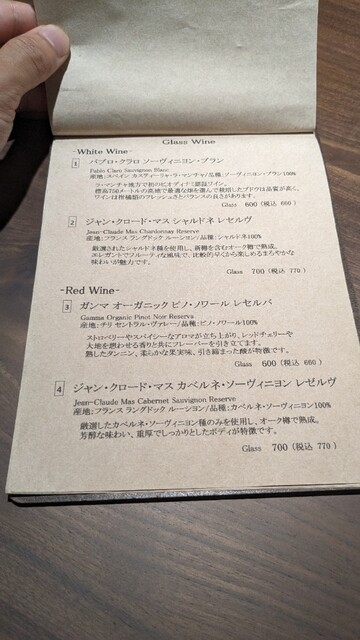 Glass Wine
-White Wine-
1 パブロ・クラロ ソーヴィニヨン・ブラン
Pablo Claro Sauvignon Blanc
産地:スペイン カスティーリャ・ラ・マンチャ/品種:ソーヴィニヨン・ブラン100%
ラ・マンチャ地方で初のビオディナミ認証ワイン。
標高750メートルの高地で最適な畑を選んで栽培したブドウは品質が高く、
ワインは柑橘類のフレッシュさとバランスの良さがあります。
Glass 600 (税込 660)
2 ジャン・クロード・マス シャルドネ レセルヴ
Jean-Claude Mas Chardonnay Reserve
産地:フランス ラングドック ルーション/品種:シャルドネ100%
厳選されたシャルドネ種を使用し、新樽を含むオーク樽で熟成。
エレガントでフルーティな風味で、比較的早くから楽しめるまろやかな
味わいが魅力です。
Glass 700 (税込 770)
-Red Wine-
3 ガンマ オーガニック ピノ・ノワール レセルバ
Gamma Organic Pinot Noir Reserva
産地:チリ セントラル・ヴァレー/品種:ピノ・ノワール100%
ストロベリーやスパイシーなアロマが立ち上がり、レッドチェリーや
大地を想わせる香りと共にフレーバーを引き立てます。
熟したタンニン、柔らかな果実味、引き締まった酸が特徴です。
Glass 600 (税込 660)
4 ジャン・クロード・マス カベルネ・ソーヴィニヨン レセルヴ
Jean-Claude Mas Cabernet Sauvignon Reserve
産地:フランス ラングドック ルーション/品種:カベルネ・ソーヴィニヨン100%
厳選したカベルネ・ソーヴィニヨン種のみを使用し、オーク樽で熟成。
芳醇な味わい、重厚でしっかりとしたボディが特徴です。
Glass 700 (税込 770)